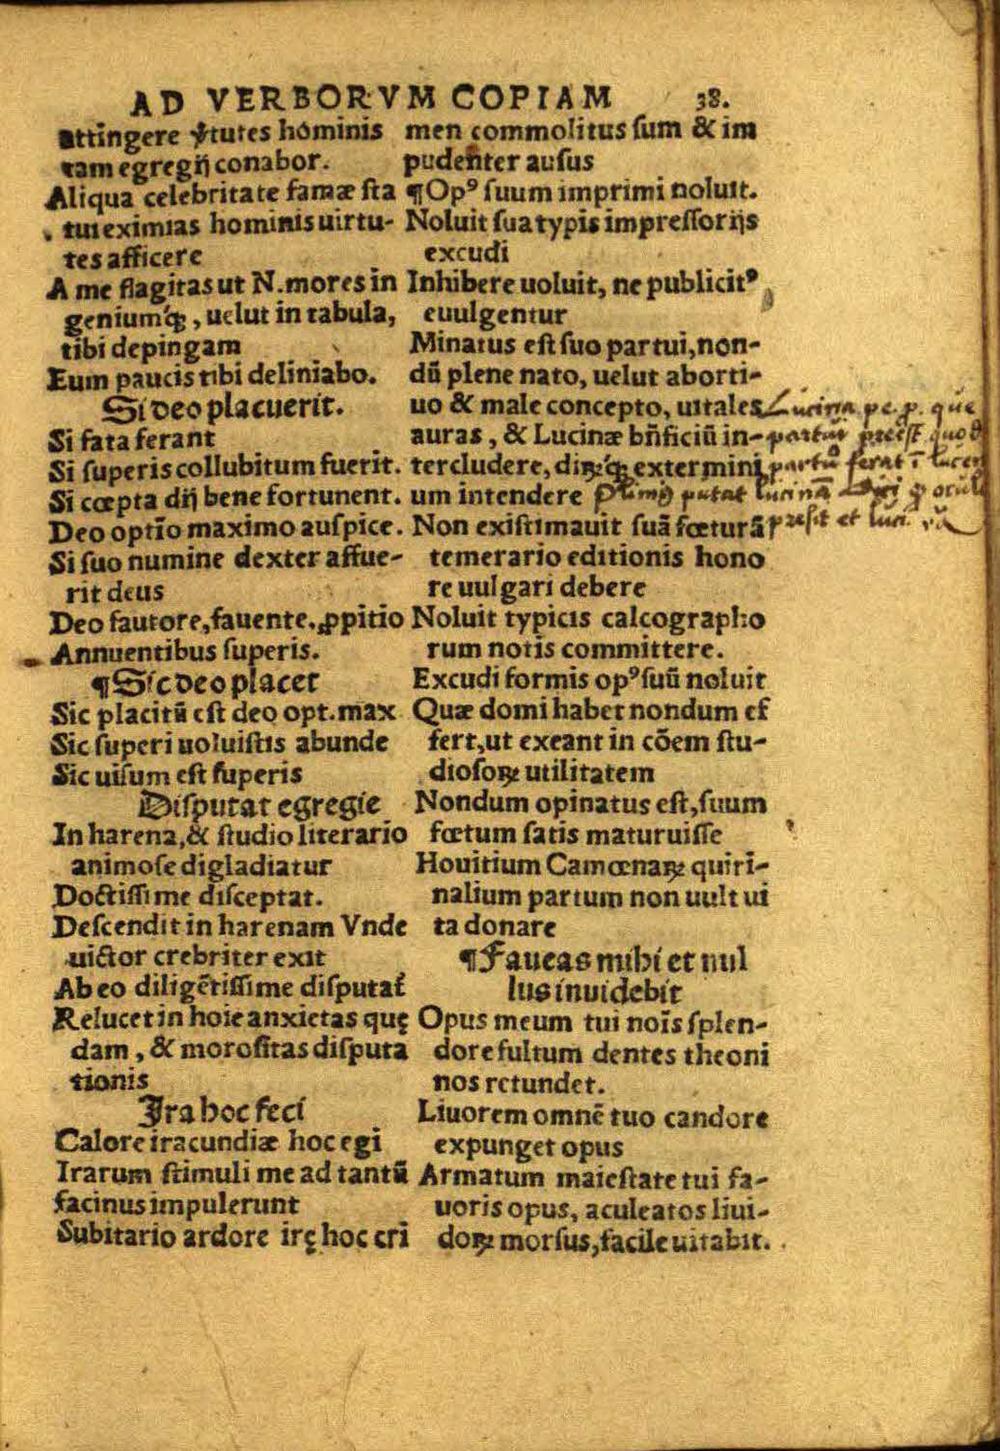 AD VERBORVM COPIAM 38.
attingere v̓tutes hominis
tam egregij conabor.
Aliqua celebritate famæ sta
tui eximias hominis uirtu-
tes afficere
A me flagitas ut N. mores in
geniumq́ꝫ, uelut in tabula,
tibi depingam
Eum paucis tibi deliniabo.
Si deo placuerit.
Si fata ferant
Si superis collubitum fuerit.
Si cœpta dij bene fortunent.
Deo optīo maximo auspice.
Si suo numine dexter affue-
rit deus
Deo fautore, fauente, ꝓpitio
Annuentibus superis.
¶Sic deo placet
Sic placitū est deo opt. max
Sic superi uoluistis abunde
Sic uisum est superis
Disputat egregie
In harena, & studio literario
animose digladiatur
Doctissime disceptat.
Descendit in harenam Vnde
uictor crebriter exit
Ab eo diligētissime disputat᷑
Relucet in hoīe anxietas quę
dam, & morositas disputa
tionis
Ira hoc feci
Calore iracundiæ hoc egi
Irarum stimuli me ad tantū
facinus impulerunt
Subitario ardore irę hoc cri
men commolitus sum & im
pudenter ausus
¶Opꝰ suum imprimi noluit.
Noluit sua typis impressorijs
excudi
Inhibere uoluit, ne publicitꝰ
euulgentur
Minatus est suo partui, non-
dū plene nato, uelut aborti-
uo & male concepto, uitales
auras, & Lucinæ bn̄ficiū in-
tercludere, dirꝝq́ꝫ extermini
um intendere
Non existimauit suā fœturā
temerario editionis hono
re uulgari debere
Noluit typicis calcographo
rum notis committere.
Excudi formis opꝰ suū noluit
Quæ domi habet nondum ef
fert, ut exeant in cōem stu-
diosoꝝ utilitatem
Nondum opinatus est, suum
fœtum satis maturuisse
Houitium Camœnaꝝ quiri-
nalium partum non uult ui
ta donare
¶Faueas mihi et nul
lus inuidebit
Opus meum tui noīs splen-
dore fultum dentes theoni
nos retundet.
Liuorem omnē tuo candore
expunget opus
Armatum maiestate tui fa-
uoris opus, aculeatos liui-
doꝝ morsus, facile uitabit.
Lucina